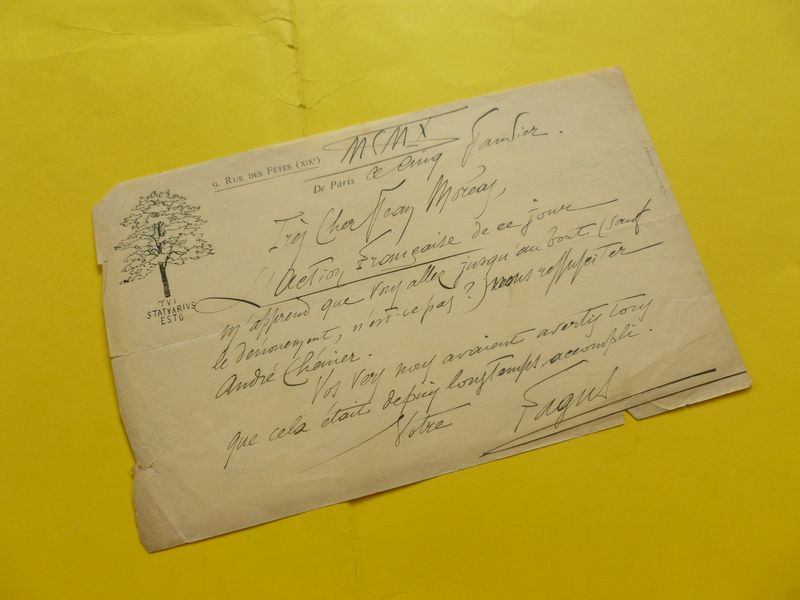 MCMX
9, RUE DES FÊTES (XIXe)
De Paris ce Cinq Janvier.
Très Cher Jean Moréas,
"Action Française de ce jour
m'apprend que vous allez jusqu'au bout (sauf
le dénouement, n'est-ce pas?) nous ressusciter
André Chénier.
Vos vers nous avaient avertis tous
que cela était depuis longtemps accompli.
Votre Fagus
TVI
STATVARIVS
ESTO